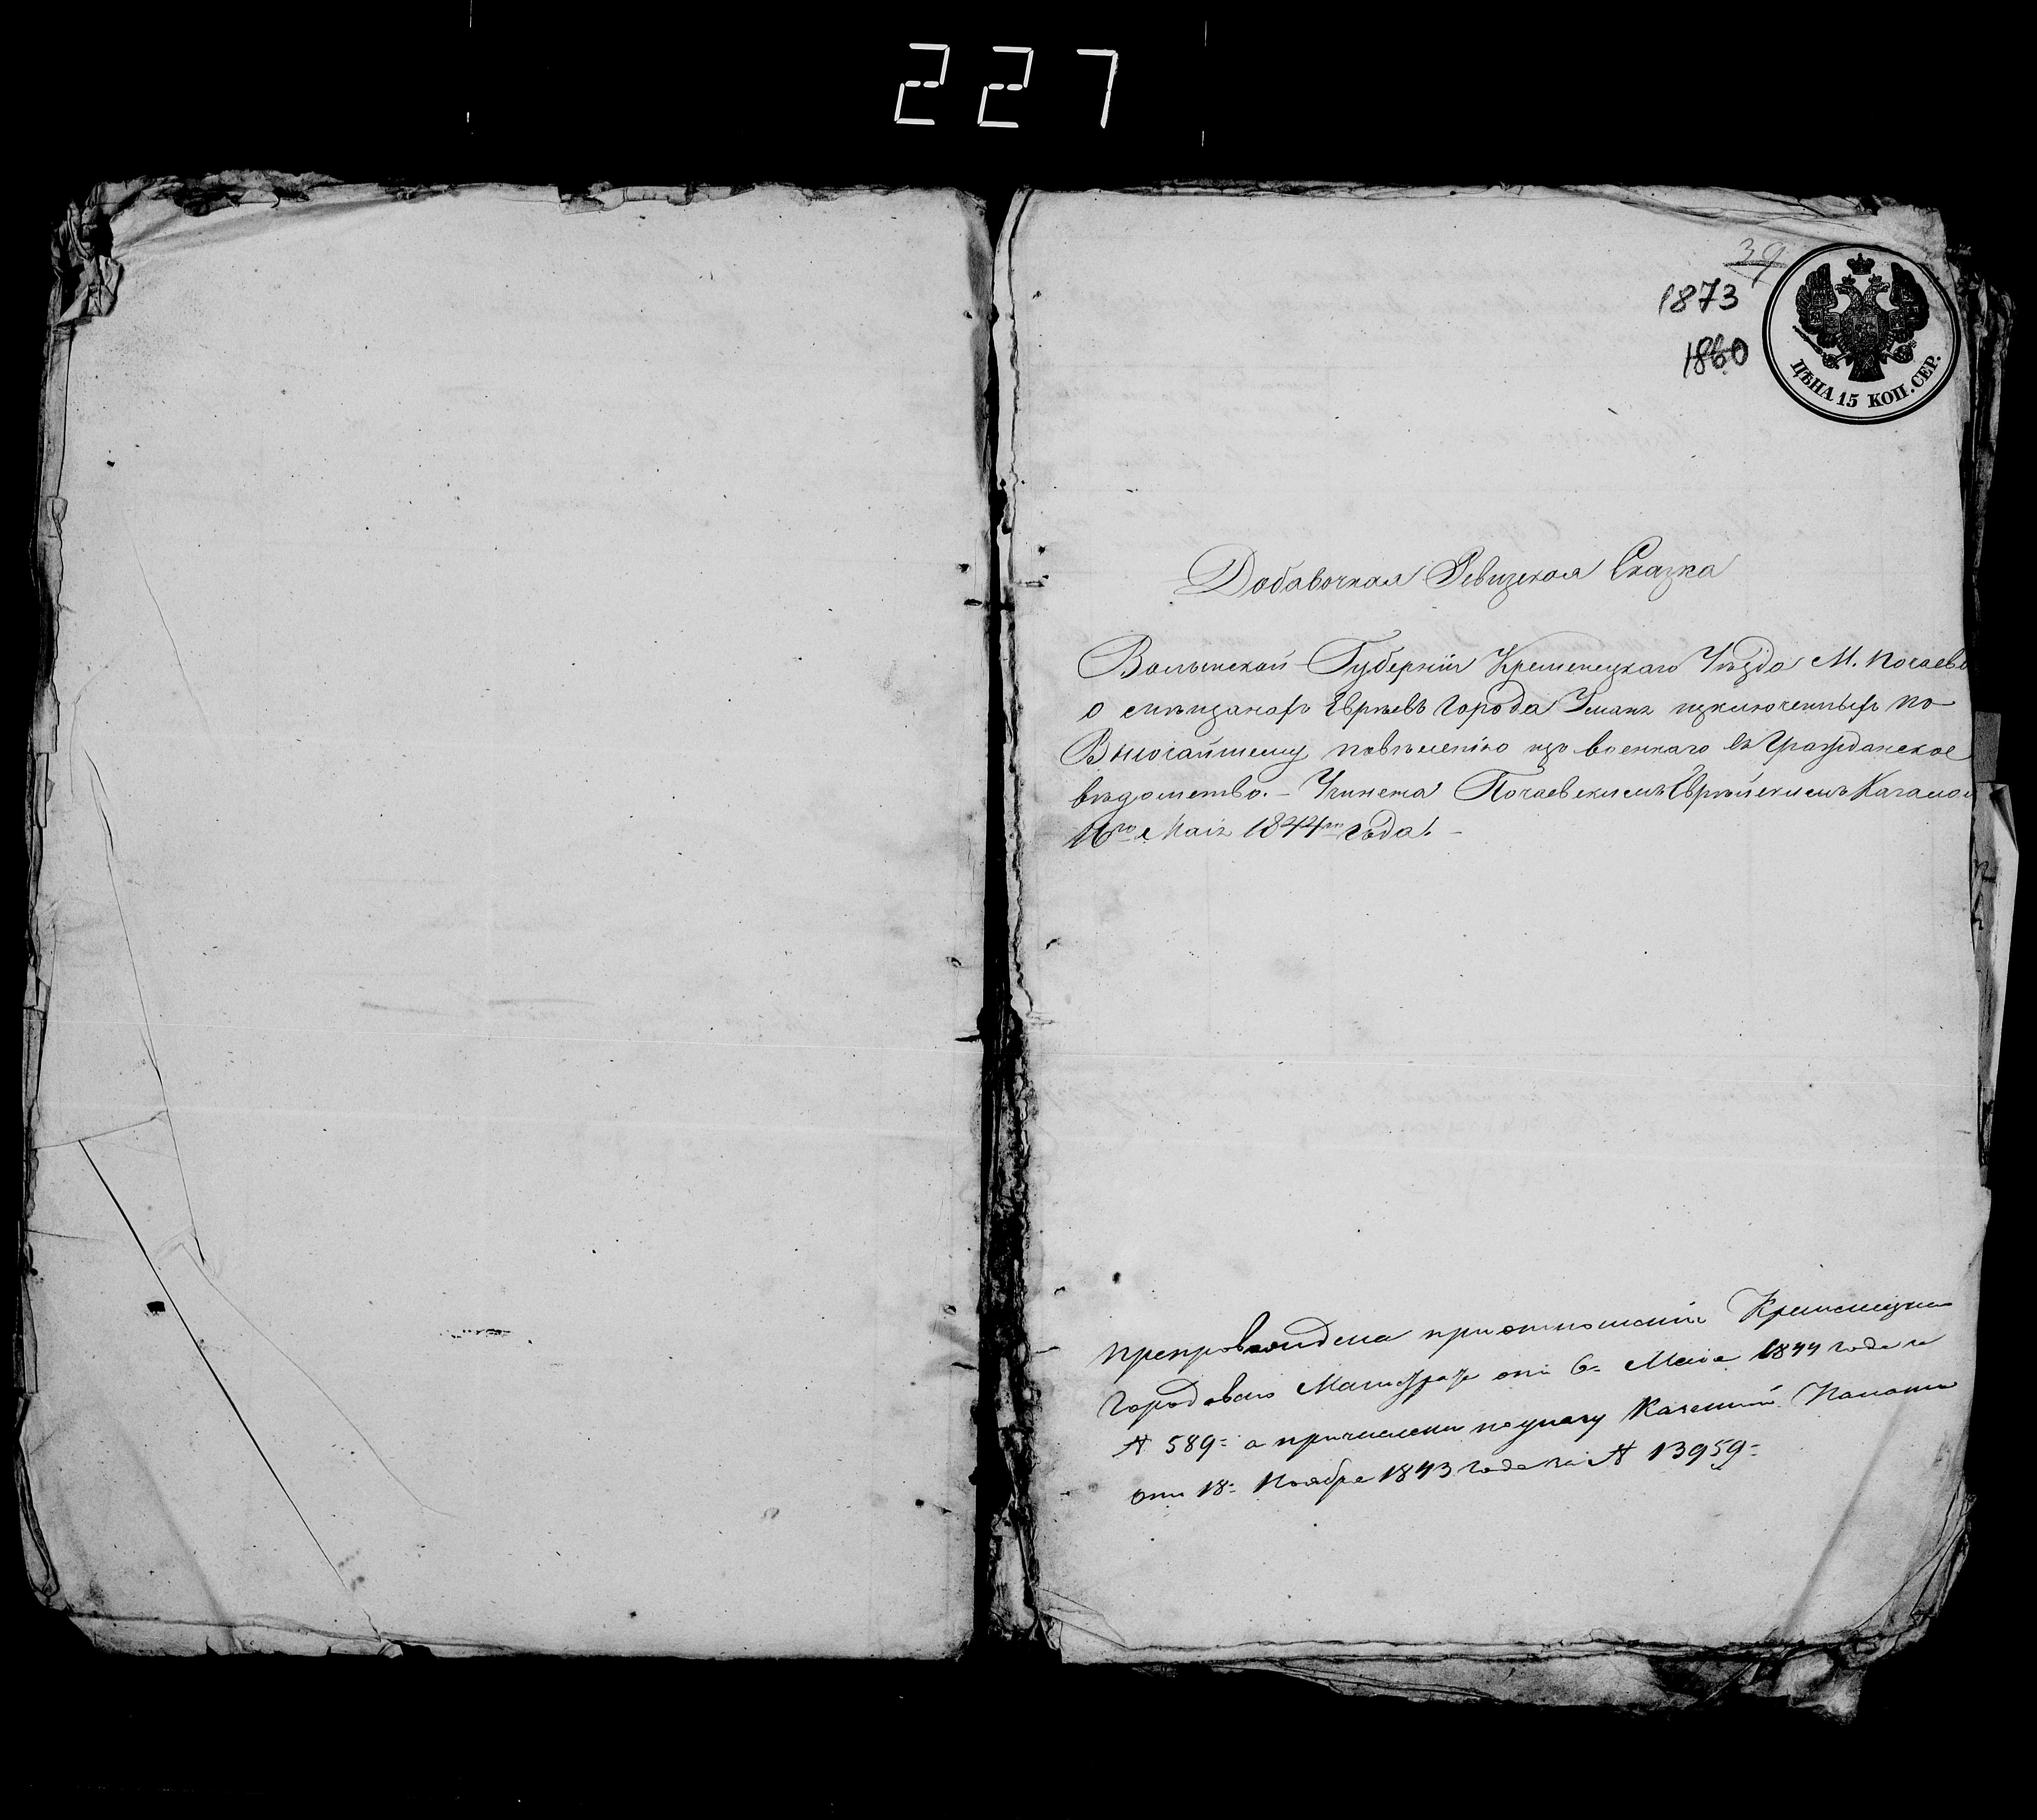 227
39
1873
1860
ЦѢНА 15 КОП. СЕР.
Добавочная Ревизская Сказка
Волынской Губерніи Кременецкаго Уѣзда М. Почаева
о мѣщанахъ Евреевъ города Умань изключенныхъ по
Высочайшему повѣленію изъ военнаго въ Гражданское
вѣдомство. – Учинена Почаевскимъ Еврѣйскимъ Кагалом
1844 года. –
препровождена при отношеніи Кременецка
Городоваго Магистрата отъ 6 Мая 1844 года за
№ 589 а причислены по указу Казенной Палаты
отъ 18 Ноября 1843 года за № 13959